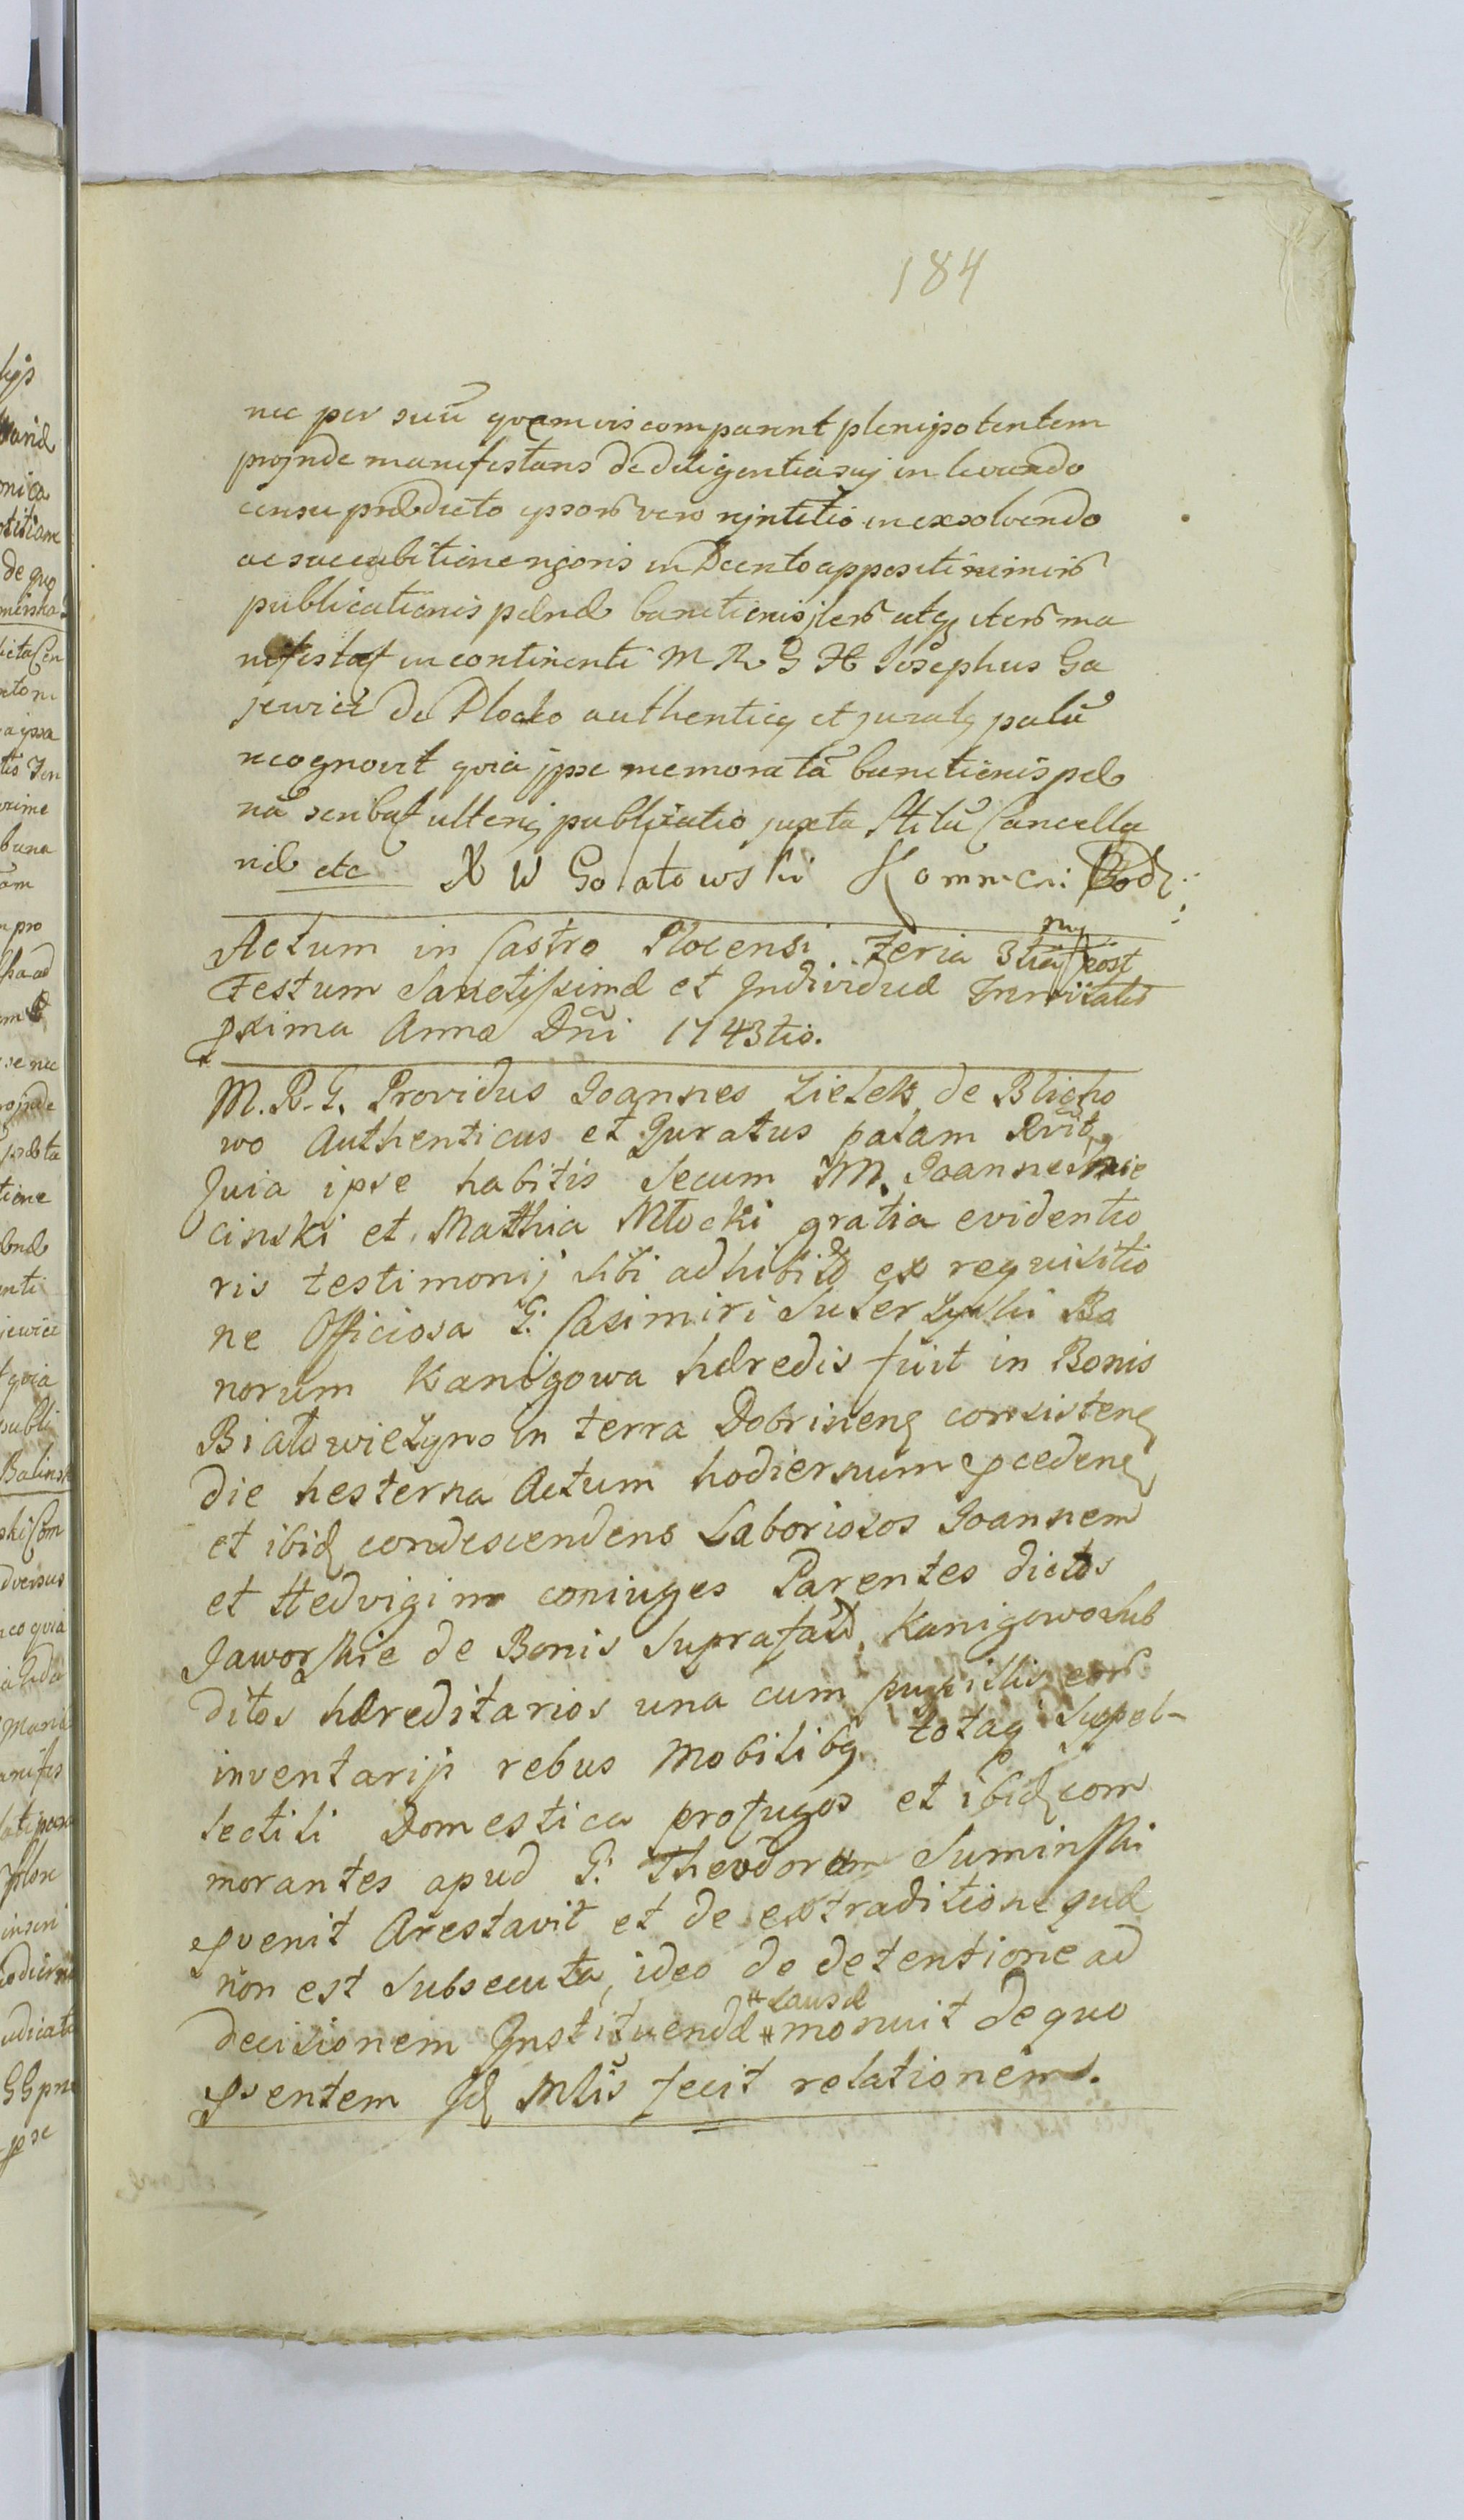 184
nec per suũ quamvis comparent plenipotentem
projnde manifestans de diligentia suj in levando
censu prædicto ypsorũ vero rejntetio in exsolvendo
ac succubitione rigoris in Dcento appositi
publicationis pœnæ bannitionis jterũ atq iterũ ma
nifestat in continenti M R G H Josephus Ga
jewicz de Plocko authenticq et juratq palũ
recognovit quia jpse memoratã bannitionis pœ
nã scribat ulterij publicatio juxta Stilũ Cancella
riæ etc X W Golatowski Komr. Cri: Podz:
Actum in Castro Plocensi Feria 3tia post
Festum Sanctissimæ et Individuæ Trinitatis
pxima Anno Dñi 1743tio.
M. R. G. Providus Joannes Zielek de Blicho
wo Authenticus et Juratus palam Rvit
Quia ipse habitis secum M. Joanne Mie
cinski et Matthia Młocki gratia evidentio
ris testimonij sibi adhibitũ ex requisitio
ne Officiosa G: Casimiri Suserzyski Bo
norum Kanigowa hæredis fuit in Bonis
Białowieżyno in terra Dobrinenę consistenę
die hesterna Actum hodiernum pcedenę
et ibidę condescendens Laboriosos Joannem
et Hedvigim coniuges Parentes dictos
Jaworskie de Bonis Suprafatũ Kanigowo sub
ditos hæreditarios una cum pupillis eorũ
inventarijs rebus Mobilibq totaq Suppel-
lectili Domestica profugos et ibidę com
morantes apud G: Theodorum Suminski
pvenit Arestavit et de extraditione quæ
non est subsecuta, ideo de detentione ad
decisionem Instituendæ # monuit de quo
# Causæ
psentem Idę Mlis fecit relationem.